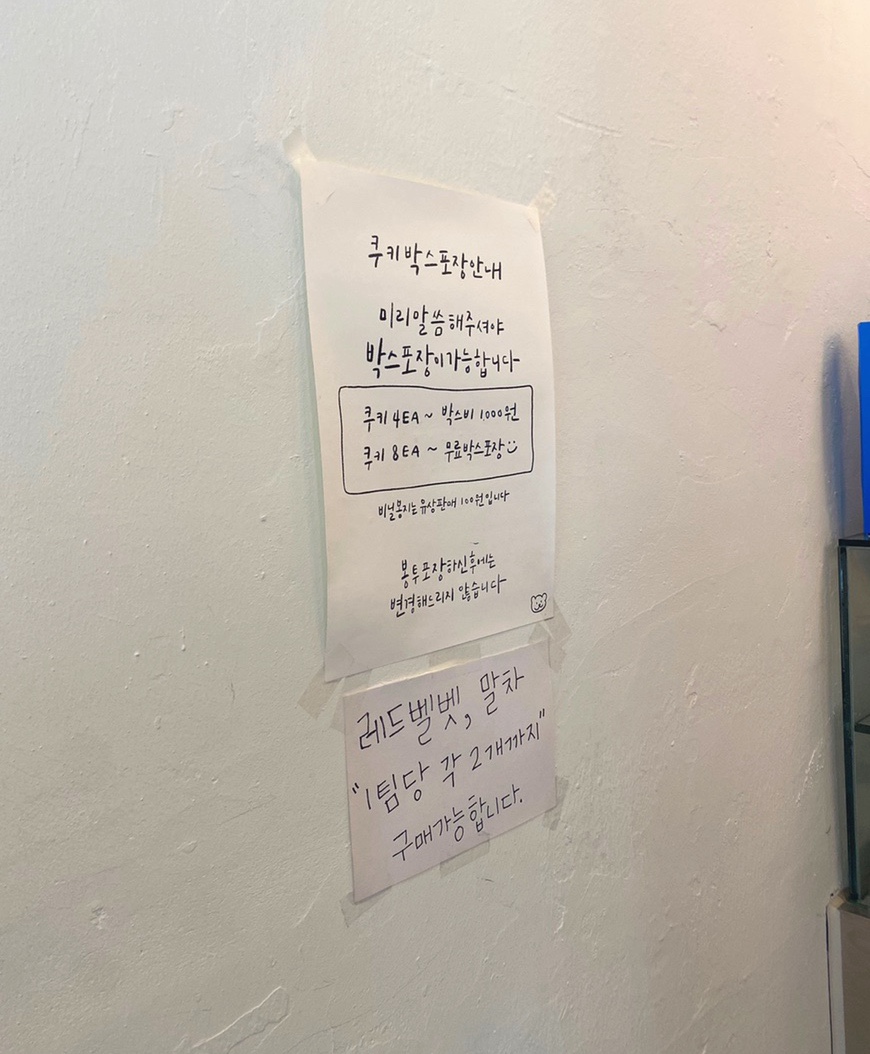 쿠키박스포장안내
미리말씀해주셔야
박스포장이가능합니다
쿠키 4EA ~ 박스비 1,000원
쿠키 8EA ~ 무료박스포장
비닐봉지는 유상판매 100원입니다
봉투포장하신후에는
변경해드리지 않습니다
레드벨벳, 말차
"1팀당 각 2개까지"
구매가능합니다.